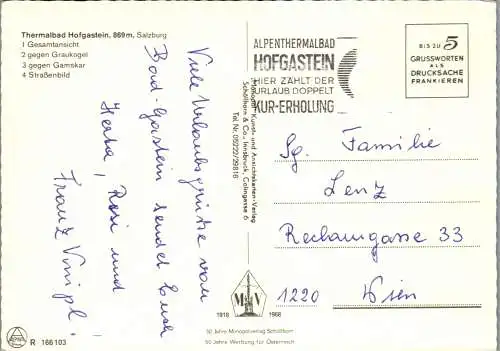 Thermalbad Hofgastein, 869 m, Salzburg
1 Gesamtansicht
2 gegen Graukogel
3 gegen Gamskar
4 Straßenbild
Viele Urlaubsgrüße von
Bad-Gastein sendet Euch
Herta, Rosi und
Franz
R 166103
Schöllhorn & Co., Innsbruck, Colingasse 6
Tel. Nr. 05222/29816
ALPENTHERMALBAD
HOFGASTEIN
HIER ZÄHLT DER
URLAUB DOPPELT
KUR-ERHOLUNG
BIS ZU 5
GRUSSWORTEN
ALS
DRUCKSACHE
FRANKIEREN
Sg. Familie
Lenz
Rechamgasse 33
1220 Wien
M V
1918 1968
50 Jahre Monopolverlag Schöllhorn
50 Jahre Werbung für Österreich